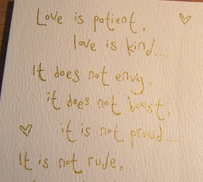 Love is patient,
love is kind....
It does not envy,
it does not boast,
it is not proud....
It is not rude,